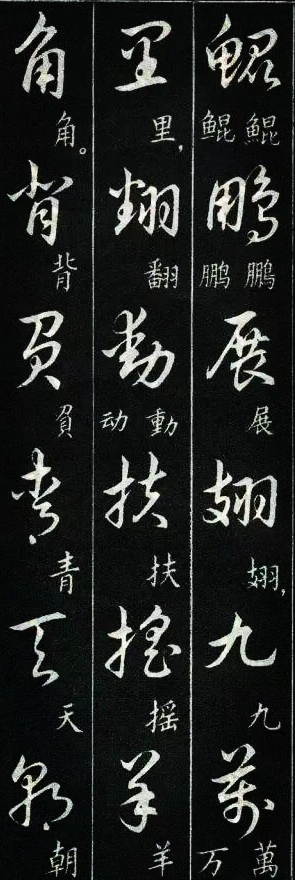 鯤鵬展翅九萬
鯤鲲 鵬鹏 展 翅, 九 萬万
里翻動扶搖羊
里, 翻 動动 扶 摇 羊
角背負青天朝
角。 背 負 青 天 朝